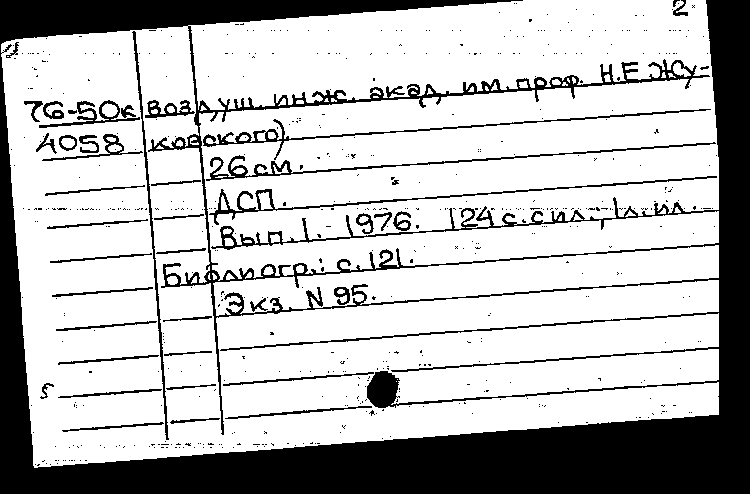 2
76-50к воздуш. инж. акад. им. проф. Н.Е.Жу-
4058 ковского).
26 см.
ДСП.
Вып. 1. 1976. 124 с. с ил.; 1 л. ил.
Библиогр.: с. 121.
Экз. N 95.